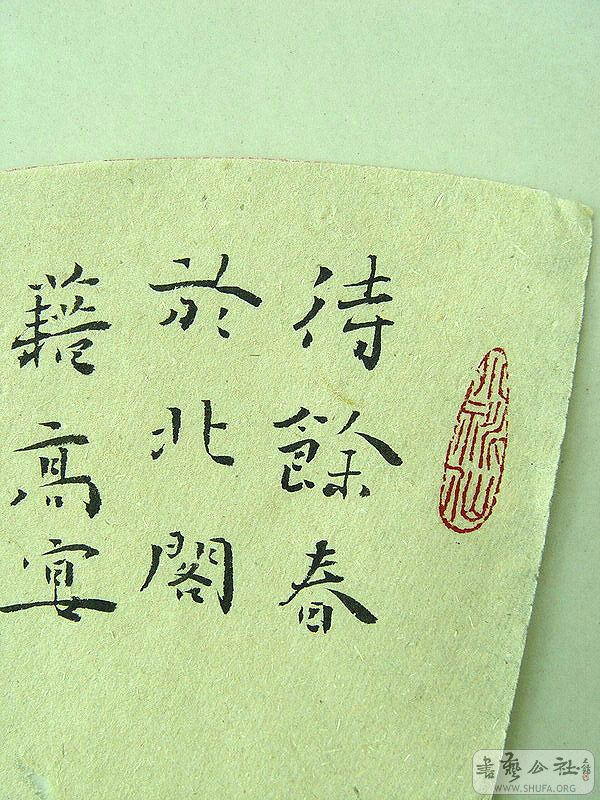 待餘春
於北閣
藉高宴
書藝公社
WWW.SHUFA.ORG